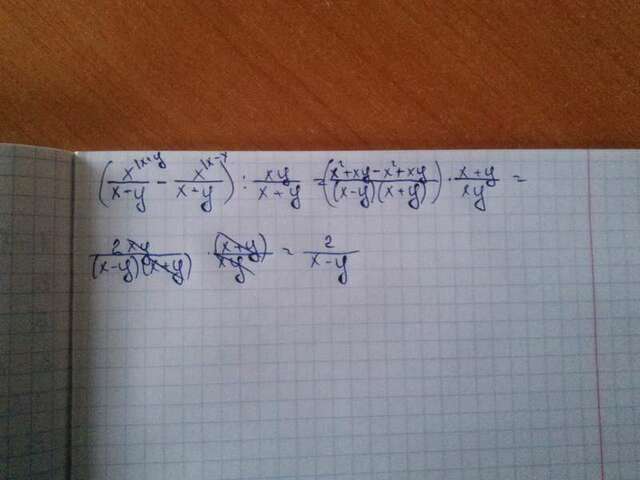 (x^{|x+y}/(x-y) - x^{|x-y}/(x+y)) : xy/(x+y) = ((x²+xy-x²+xy)/((x-y)(x+y))) · (x+y)/(xy) =
2xy/((x-y)(x+y)) · (x+y)/(xy) = 2/(x-y)